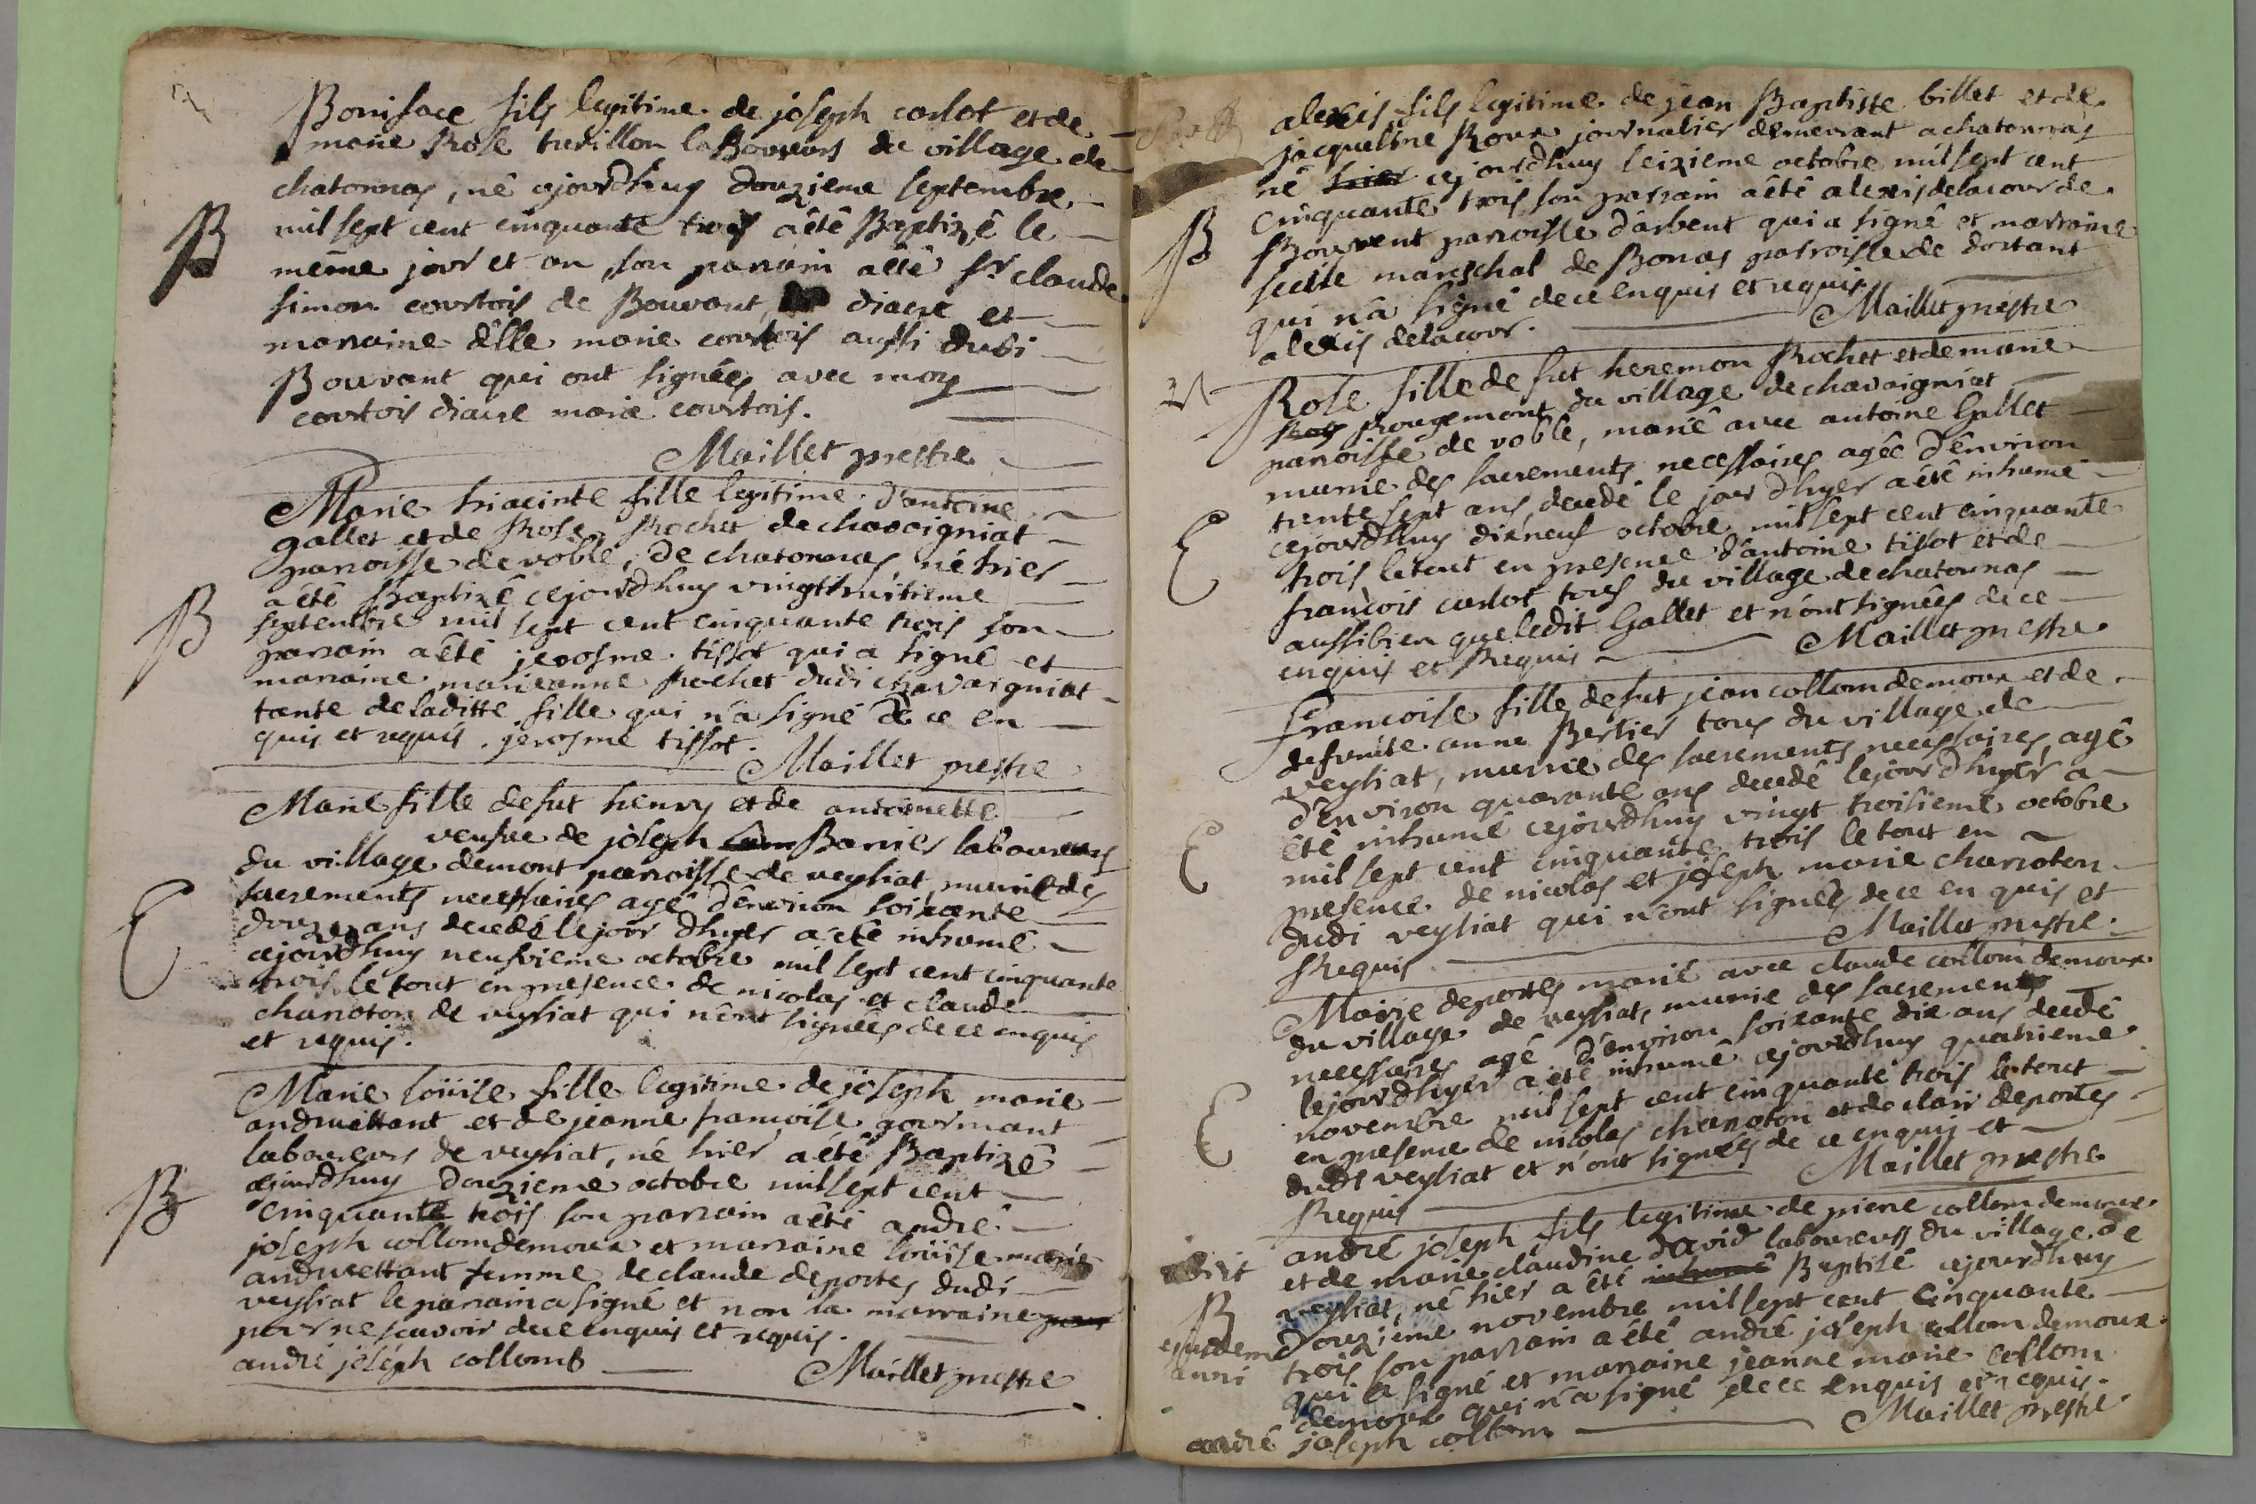 Boniface fils legitime de joseph carlot et de
marie Rose trevillon laboureurs du village de
chatonnas, né cejourdhuy douzieme septembre
B
mil sept cent cinquante trois a été Baptizé le
même jour et an, son parrain a été Sr claude
simon courtois de Bouvant diacre et
marraine dêlle marie courtois aussi dudi
Bouvant qui ont signées avec moy
courtois diacre marie courtois.
Maillet prestre
Marie hiacinte fille legitime d'antoine
gallet et de Rose Rochet de chavaigniat
parroisse de voble, de chatonnas, né hier
B
a été Baptizé cejourdhuy vingthuitieme
septembre mil sept cent cinquante trois son
parrain a été jerosme tissot qui a signé et
marraine marieanne Rochet dudi chavaigniat
tante de laditte fille qui n'a signé de ce en
quis et requis. jerosme tissot.
Maillet prestre
Marie fille de fut henry et de antoinette
veufve de joseph Barrier laboureurs
du village demont parroisse de veysiat, munie des
E
sacrements necessaires agé d'environ soixante
douze ans decedé le jour dhyer a été inhumé
cejourdhuy neufvieme octobre mil sept cent cinquante
trois le tout en presence de nicolas et claude
charroton de veysiat qui n'ont signées de ce enquis
et requis.
Marie loüise fille legitime de joseph marie
andruettant et de jeanne francoise gourmant
laboureurs de veysiat, né hier a été Baptizé
B
cejourdhuy douzieme octobre mil sept cent
cinquante trois son parrain a été andré
joseph collomdemoux et marraine loüise marie
andruettant femme de claude deportes dudi
veysiat le parrain a signé et non la marraine pour
pour ne scavoir de ce enquis et requis.
andré joseph collomb
Maillet prestre
alexis fils legitime de jean Baptiste billet et de
jacqueline Roux journalier demeurant a chatonnas
né hier cejourdhuy seizieme octobre mil sept cent
cinquante trois son parrain a été alexis delacour de
B
Bouvent parroisse d'arbent qui a signé et marraine
marechal de Bonas parroisse de dortant
qui n'a signé de ce enquis et requis.
alexis delacour.
Maillet prestre
Rose fille de fut heremon Rochet et de marie
Rougemont du village de chavaigniat
parroisse de voble, marié avec antoine Gallet
munie des sacrements necessaires agée d'environ
trente sept ans, decedé le jour dhyer a été inhumé
E
cejourdhuy dixneuf octobre mil sept cent cinquante
trois le tout en presence d'antoine tissot et de
francois carlot tous du village de chatonnas
aussibien que ledit Gallet et n'ont signées de ce
enquis et Requis
Maillet prestre
francoise fille de fut jean collomdemoux et de
defunte anne Bertier tous du village de
veysiat, munie des sacrements necessaires, agé
d'environ quarante ans decedé le jour dhyer a
E
été inhumé cejourdhuy vingt troisieme octobre
mil sept cent cinquante trois le tout en
presence de nicolas et joseph marie charroton
dudi veysiat qui n'ont signées de ce en quis et
Requis
Maillet prestre.
Marie deportes marié avec claude collomdemoux
du village de veysiat, munie des sacrements
necessaires agé d'environ soixante dix ans decedé
le jour dhyer a été inhumé cejourdhuy quatrieme
E
novembre mil sept cent cinquante trois le tout
en presence de nicolas charroton et de clair deportes
dudi veysiat et n'ont signées de ce enquis et
Requis
Maillet prestre
andré joseph fils legitime de pierre collomdemoux
et de marie claudine david laboureurs du village de
veysiat, né hier a été inhumé Baptisé cejourdhuy
B
douzieme novembre mil sept cent cinquante
ejusdem
trois son parrain a été andré joseph collomdemoux
anni
qui a signé et marraine jeanne marie collom
demoux qui n'a signé de ce enquis et requis.
andré joseph collom
Maillet prestre